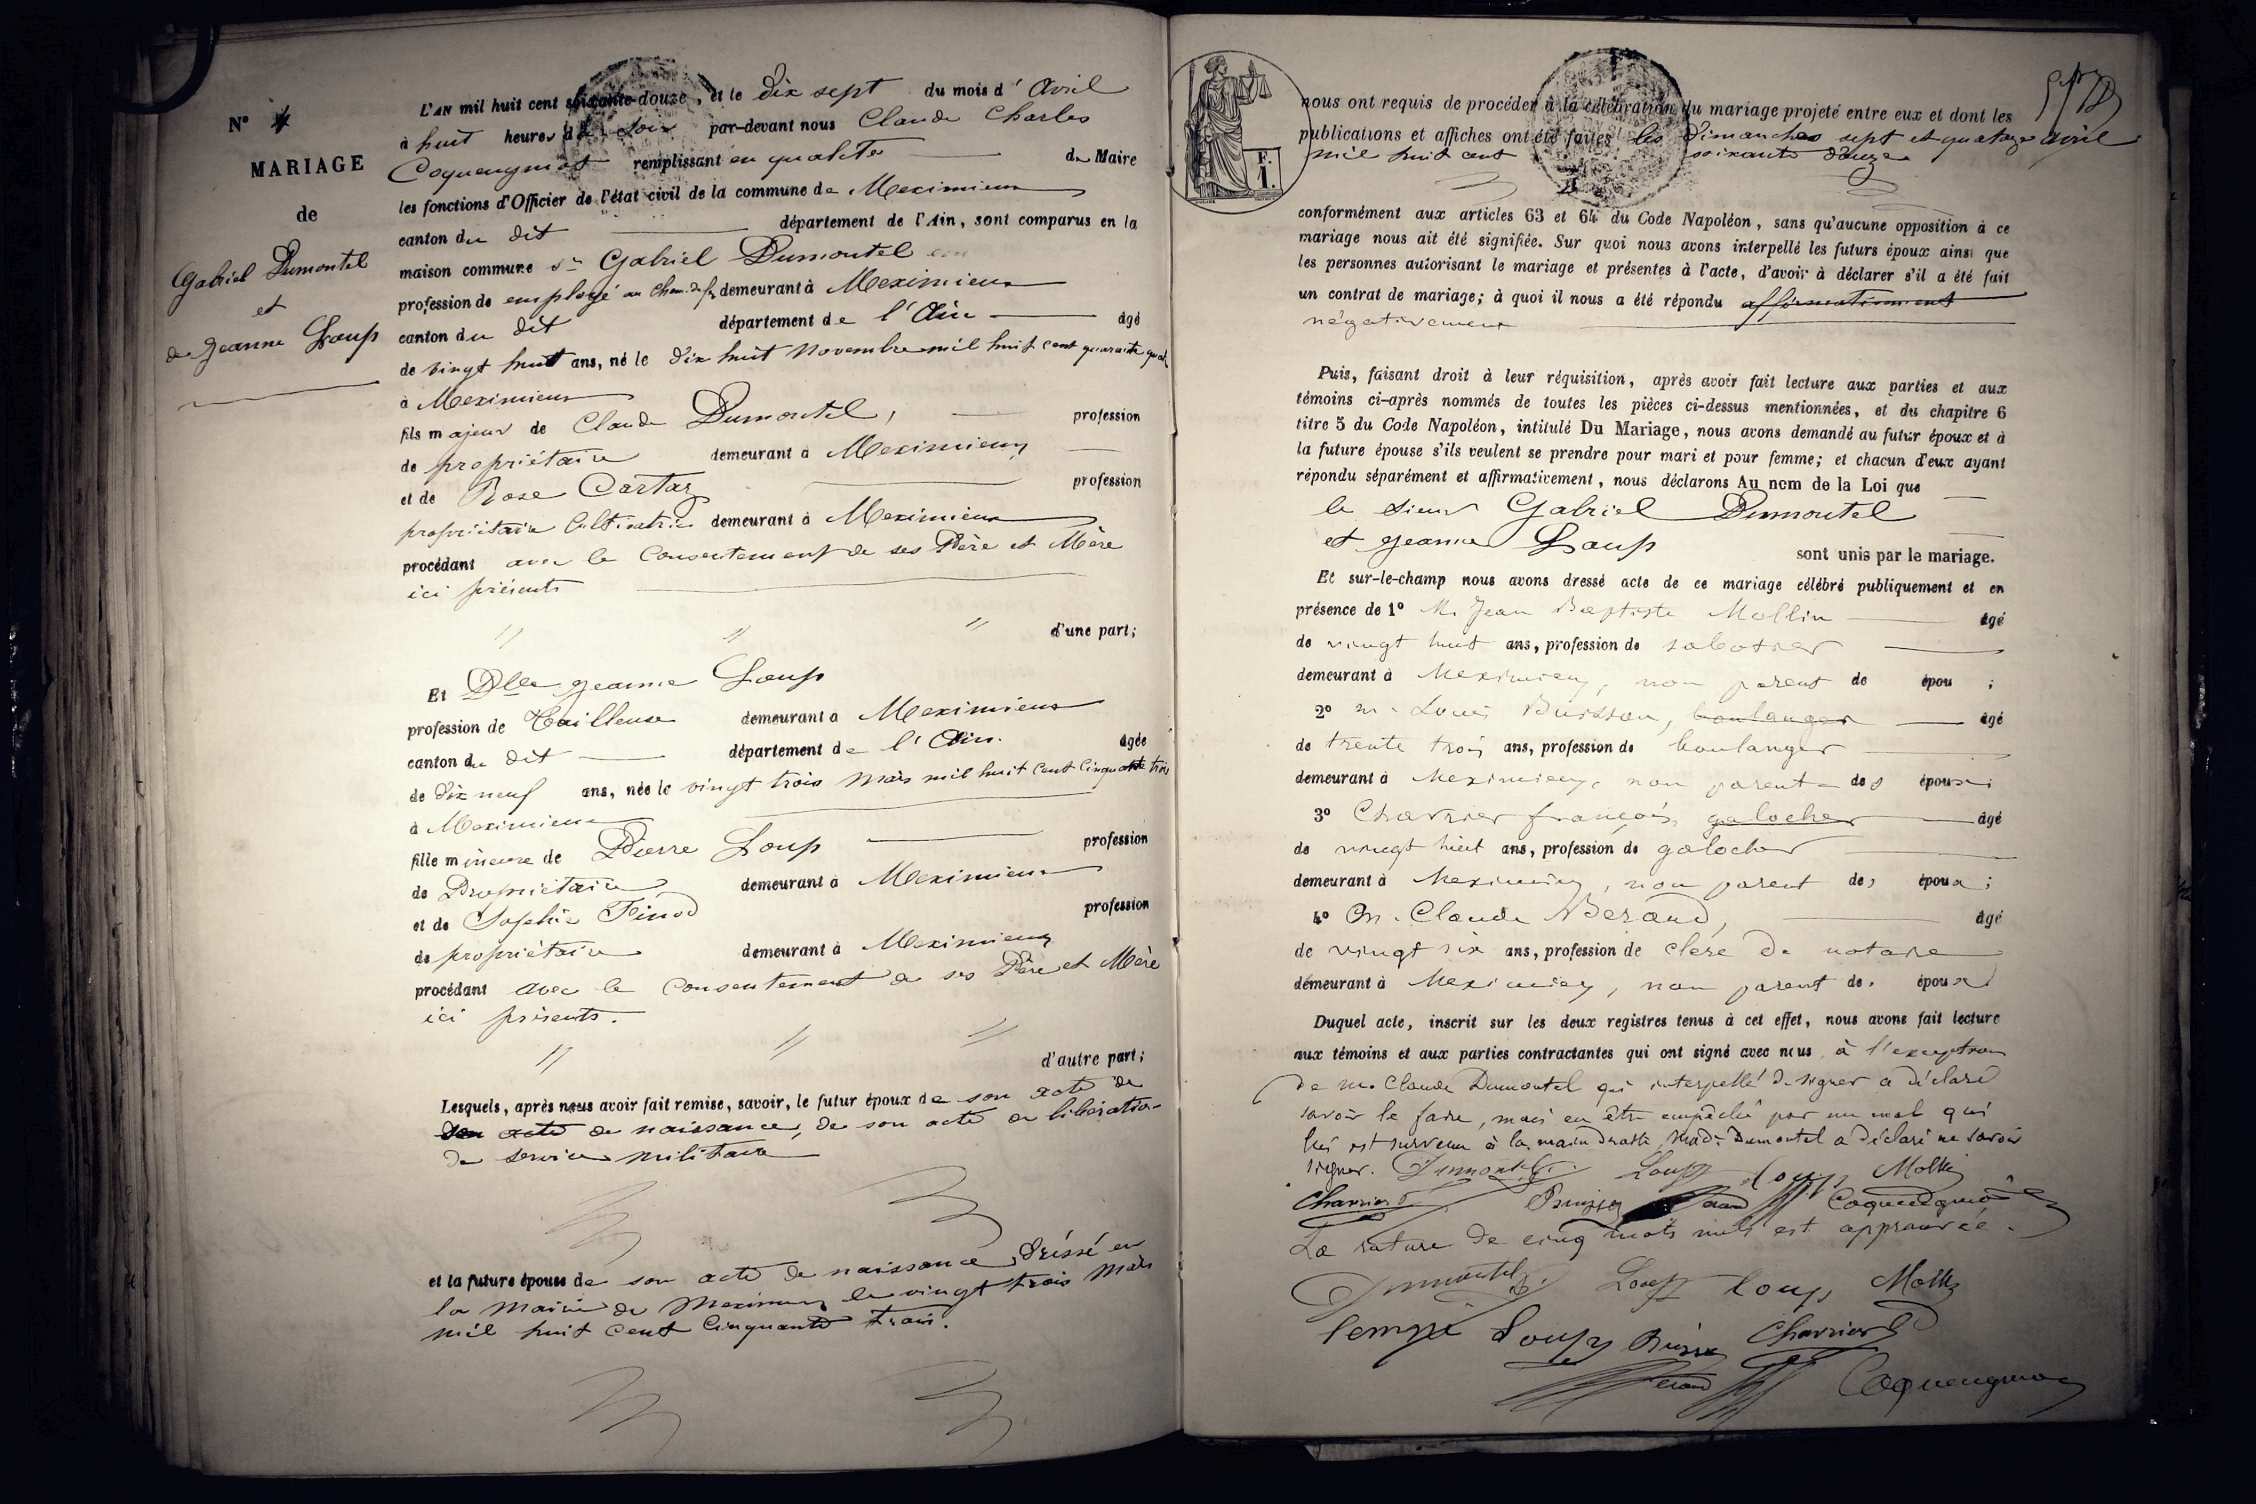 N° 4
MARIAGE
de
Gabriel Dumontel
et
de Jeanne Loup
L'AN mil huit cent soixante-douze, et le dix sept du mois d'Avril
à huit heures du soir par-devant nous Claude Charles
Coquengniot remplissant en qualité de Maire
les fonctions d'Officier de l'état civil de la commune de Meximieux
canton du dit département de l'Ain, sont comparus en la
maison commune sr Gabriel Dumontel
profession de employé au Chem. de fer demeurant à Meximieux
canton du dit département de l'Ain âgé
de vingt huit ans, né le dix huit Novembre mil huit cent quarante quat
à Meximieux
fils majeur de Claude Dumontel, profession
de propriétaire demeurant à Meximieux
et de Rose Cartaz profession
propriétaire Cultivatrice demeurant à Meximieux
procédant avec le Consentement de ses Père et Mère
ici présents
d'une part;
Et Dlle Jeanne Loup
profession de Tailleuse demeurant à Meximieux
canton du dit département de l'Ain. âgée
de dix neuf ans, née le vingt trois Mars mil huit cent cinquante trois
à Meximieux
fille mineure de Pierre Loup profession
de Propriétaire demeurant à Meximieux
et de Sophie Finod profession
de propriétaire demeurant à Meximieux
procédant avec le consentement de ses Père et Mère
ici présents.
d'autre part;
Lesquels, après nous avoir fait remise, savoir, le futur époux de son acte de
son acte de naissance, de son acte de libération
de service militaire
et la future épouse de son acte de naissance, dréssé en
la Mairie de Meximieux le vingt trois Mars
mil huit cent Cinquante trois.
nous ont requis de procéder à la célébration du mariage projeté entre eux et dont les
publications et affiches ont été faites les dimanches sept et quatorze avril
mil huit cent soixante douze
F.
1.
conformément aux articles 63 et 64 du Code Napoléon, sans qu'aucune opposition à ce
mariage nous ait été signifiée. Sur quoi nous avons interpellé les futurs époux ainsi que
les personnes autorisant le mariage et présentes à l'acte, d'avoir à déclarer s'il a été fait
un contrat de mariage; à quoi il nous a été répondu affirmativement
négativement
Puis, faisant droit à leur réquisition, après avoir fait lecture aux parties et aux
témoins ci-après nommés de toutes les pièces ci-dessus mentionnées, et du chapitre 6
titre 5 du Code Napoléon, intitulé Du Mariage, nous avons demandé au futur époux et à
la future épouse s'ils veulent se prendre pour mari et pour femme; et chacun d'eux ayant
répondu séparément et affirmativement, nous déclarons Au nom de la Loi que
le Sieur Gabriel Dumontel
et Jeanne Loup sont unis par le mariage.
Et sur-le-champ nous avons dressé acte de ce mariage célébré publiquement et en
présence de 1° M. Jean Baptiste Mollin âgé
de vingt huit ans, profession de sabotier
demeurant à Meximieux, non parent de épou ;
2° M. Louis Buisson, boulanger âgé
de trente trois ans, profession de boulanger
demeurant à Meximieux, non parent des époux;
3° Charrier françois, galocher âgé
de vingt huit ans, profession de galocher
demeurant à Meximieux, non parent des époux;
4° M. Claude Berand, âgé
de vingt six ans, profession de clerc de notaire
demeurant à Meximieux, non parent des époux
Duquel acte, inscrit sur les deux registres tenus à cet effet, nous avons fait lecture
aux témoins et aux parties contractantes qui ont signé avec nous à l'exception
de M. Claude Dumontel qui interpellé de signer a déclaré
savoir le faire, mais en être empêché par un mal qui
lui est survenu à la main droite, Made Dumontel a déclaré ne savoir
signer. Dumontel Loup Loup Mollin
Charrier Buisson Berand Coquengniot
La rature de cinq mots nuls est approuvée.
Dumontel Loup Loup Mollin
Loup Buisson Charrier
Berand Coquengniot